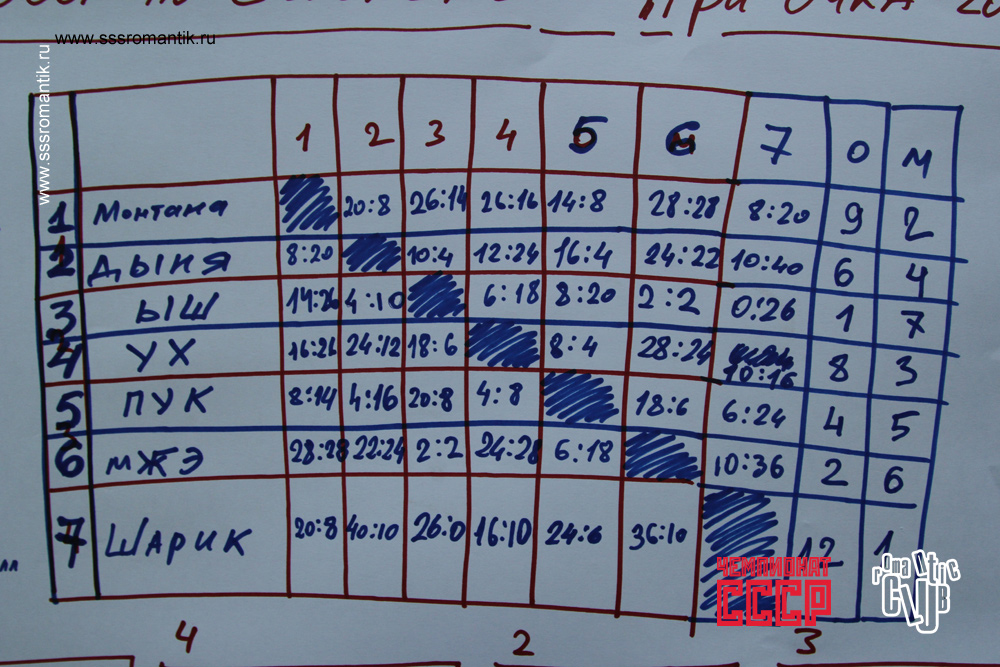 При очка 20
www.sssromantik.ru
www.sssromantik.ru
1 2 3 4 5 6 7 О М
1 Монтана 20:8 26:14 26:16 14:8 28:28 8:20 9 2
2 ДЫНЯ 8:20 10:4 12:24 16:4 24:22 10:40 6 4
3 ЫШ 14:26 4:10 6:18 8:20 2:2 0:26 1 7
4 УХ 16:26 24:12 18:6 8:4 28:24 10:16 8 3
5 ПУК 8:14 4:16 20:8 4:8 18:6 6:24 4 5
6 МЖЭ 28:28 22:24 2:2 24:28 6:18 10:36 2 6
7 ШАРИК 20:8 40:10 26:0 16:10 24:6 36:10 12 1
ЧЕМПИОНАТ
СССР
romantic
CLUB
4 2 3